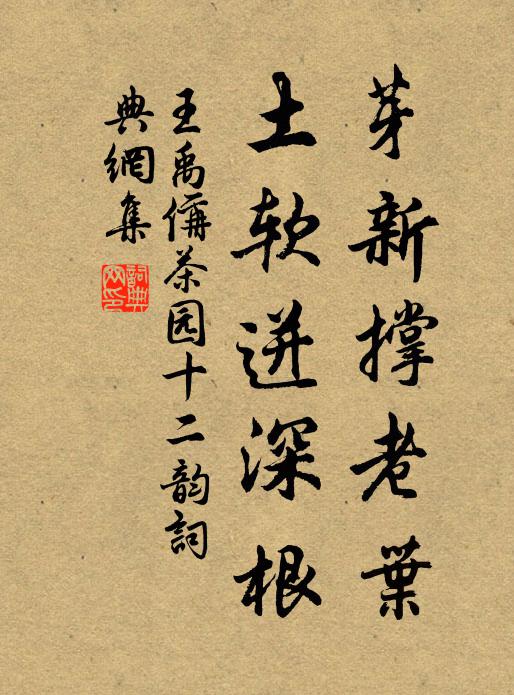 芽新撑老葉
土软迸深根
王禹偁茶园十二韵詞
典網集
詞典网印